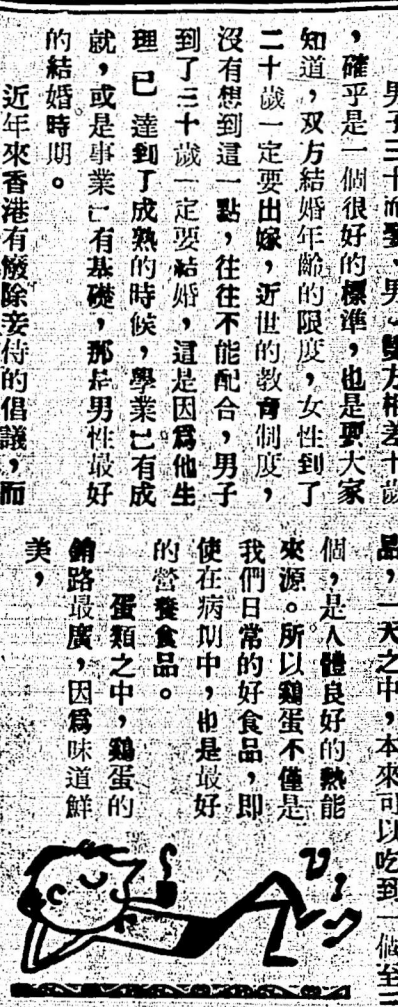 男子三十而娶、男女雙方相差十歲
，確乎是一個很好的標準，也是要大家
知道，双方結婚年齡的限度，女性到了
二十歲一定要出嫁，近世的教育制度，
沒有想到這一點，往往不能配合，男子
到了三十歲一定要結婚，這是因爲他生
理已達到了成熟的時候，學業已有成
就，或是事業已有基礎，那是男性最好
的結婚時期。
近年來香港有廢除妾侍的倡議，而
品，一天之中，本來可以吃到一個至二
個，是人體良好的熱能
來源。所以鷄蛋不僅是
我們日常的好食品，即
使在病期中，也是最好
的營養食品。
蛋類之中，鷄蛋的
銷路最廣，因爲味道鮮
美，